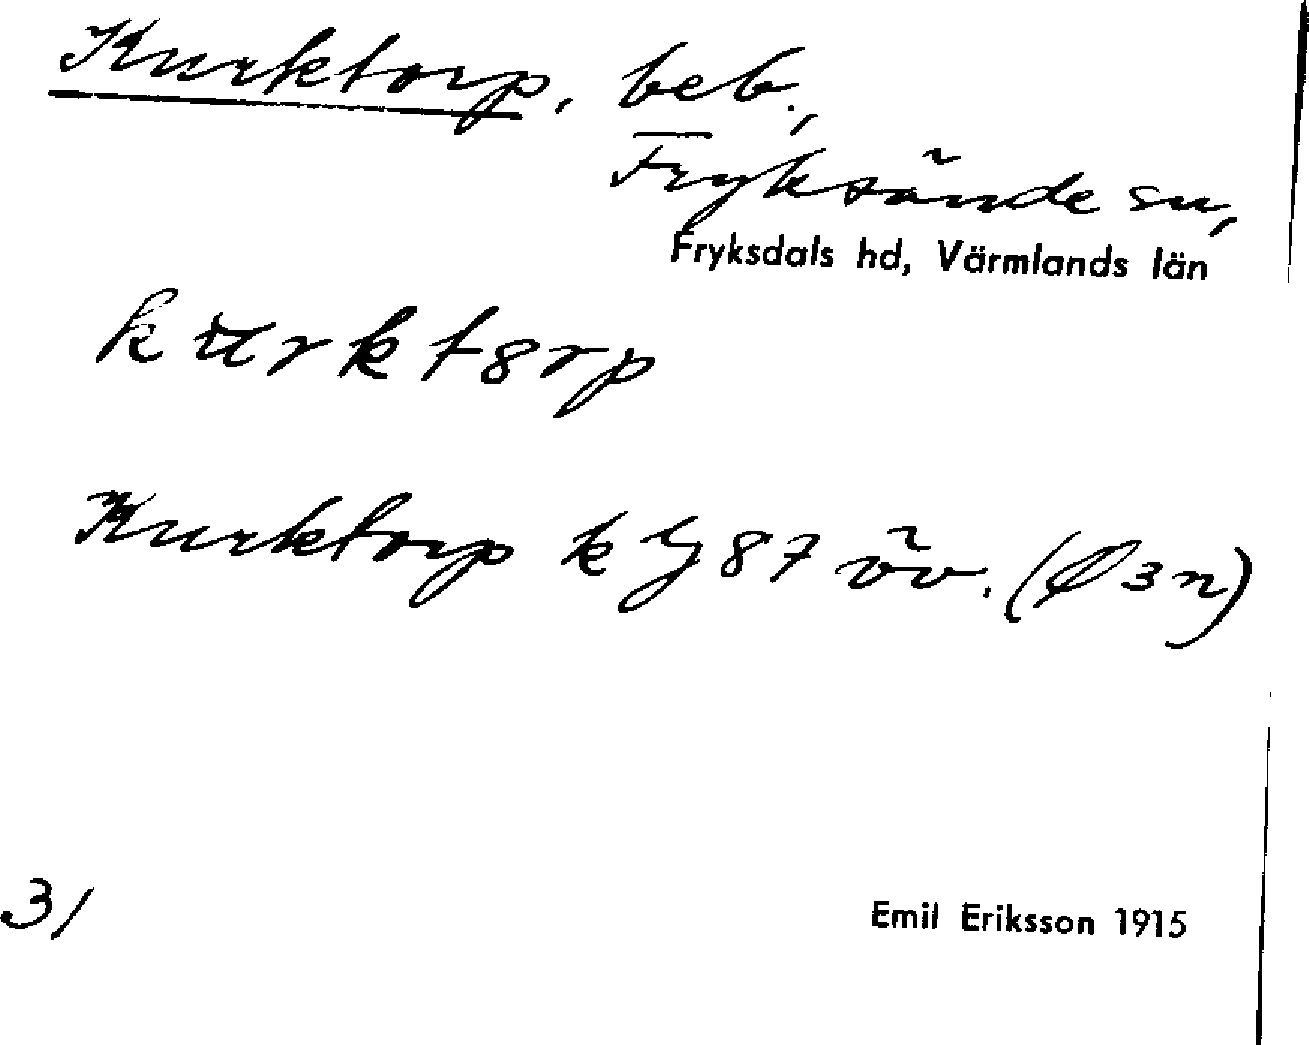 Kurktorp, beb.,
Fryksände sn,
Fryksdals hd, Värmlands län
kurktorp
Kurktorp k 87 öv. (Ø3n)
31
Emil Eriksson 1915